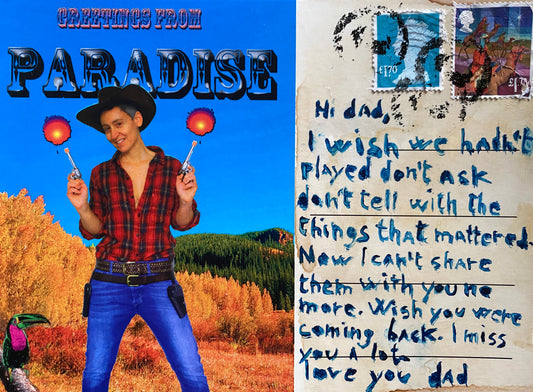 GREETINGS FROM
PARADISE
£1.70
£1.70
Hi dad,
I wish we hadn't
played don't ask
don't tell with the
things that mattered.
Now I can't share
them with you no
more. Wish you were
coming back. I miss
you a lot.
love you dad